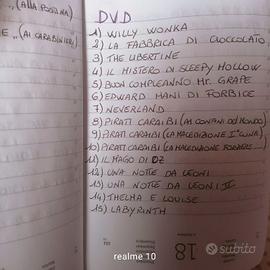 „ (ALLA POSTINA)
E „ (AI CARABINIERI)
DVD
1) WILLY WONKA
2) LA FABBRICA DI CIOCCOLATO
3) THE LIBERTINE
4) IL MISTERO DI SLEEPY HOLLOW
5) BUON COMPLEANNO Mr. GRAPE
6) EDWARD MANI DI FORBICE
7) NEVERLAND
8) PIRATI CARAIBI (AI CONFINI DEL MONDO)
9) PIRATI CARAIBI (LA MALEDIZIONE 1ª LUNA)
10) PIRATI CARAIBI (LA MALEDIZIONE FORZIERE
11) IL MAGO DI OZ
12) UNA NOTTE DA LEONI
13) UNA NOTTE DA LEONI II
14) THELMA E LOUISE
15) LABYRINTH
18
subito
realme 10